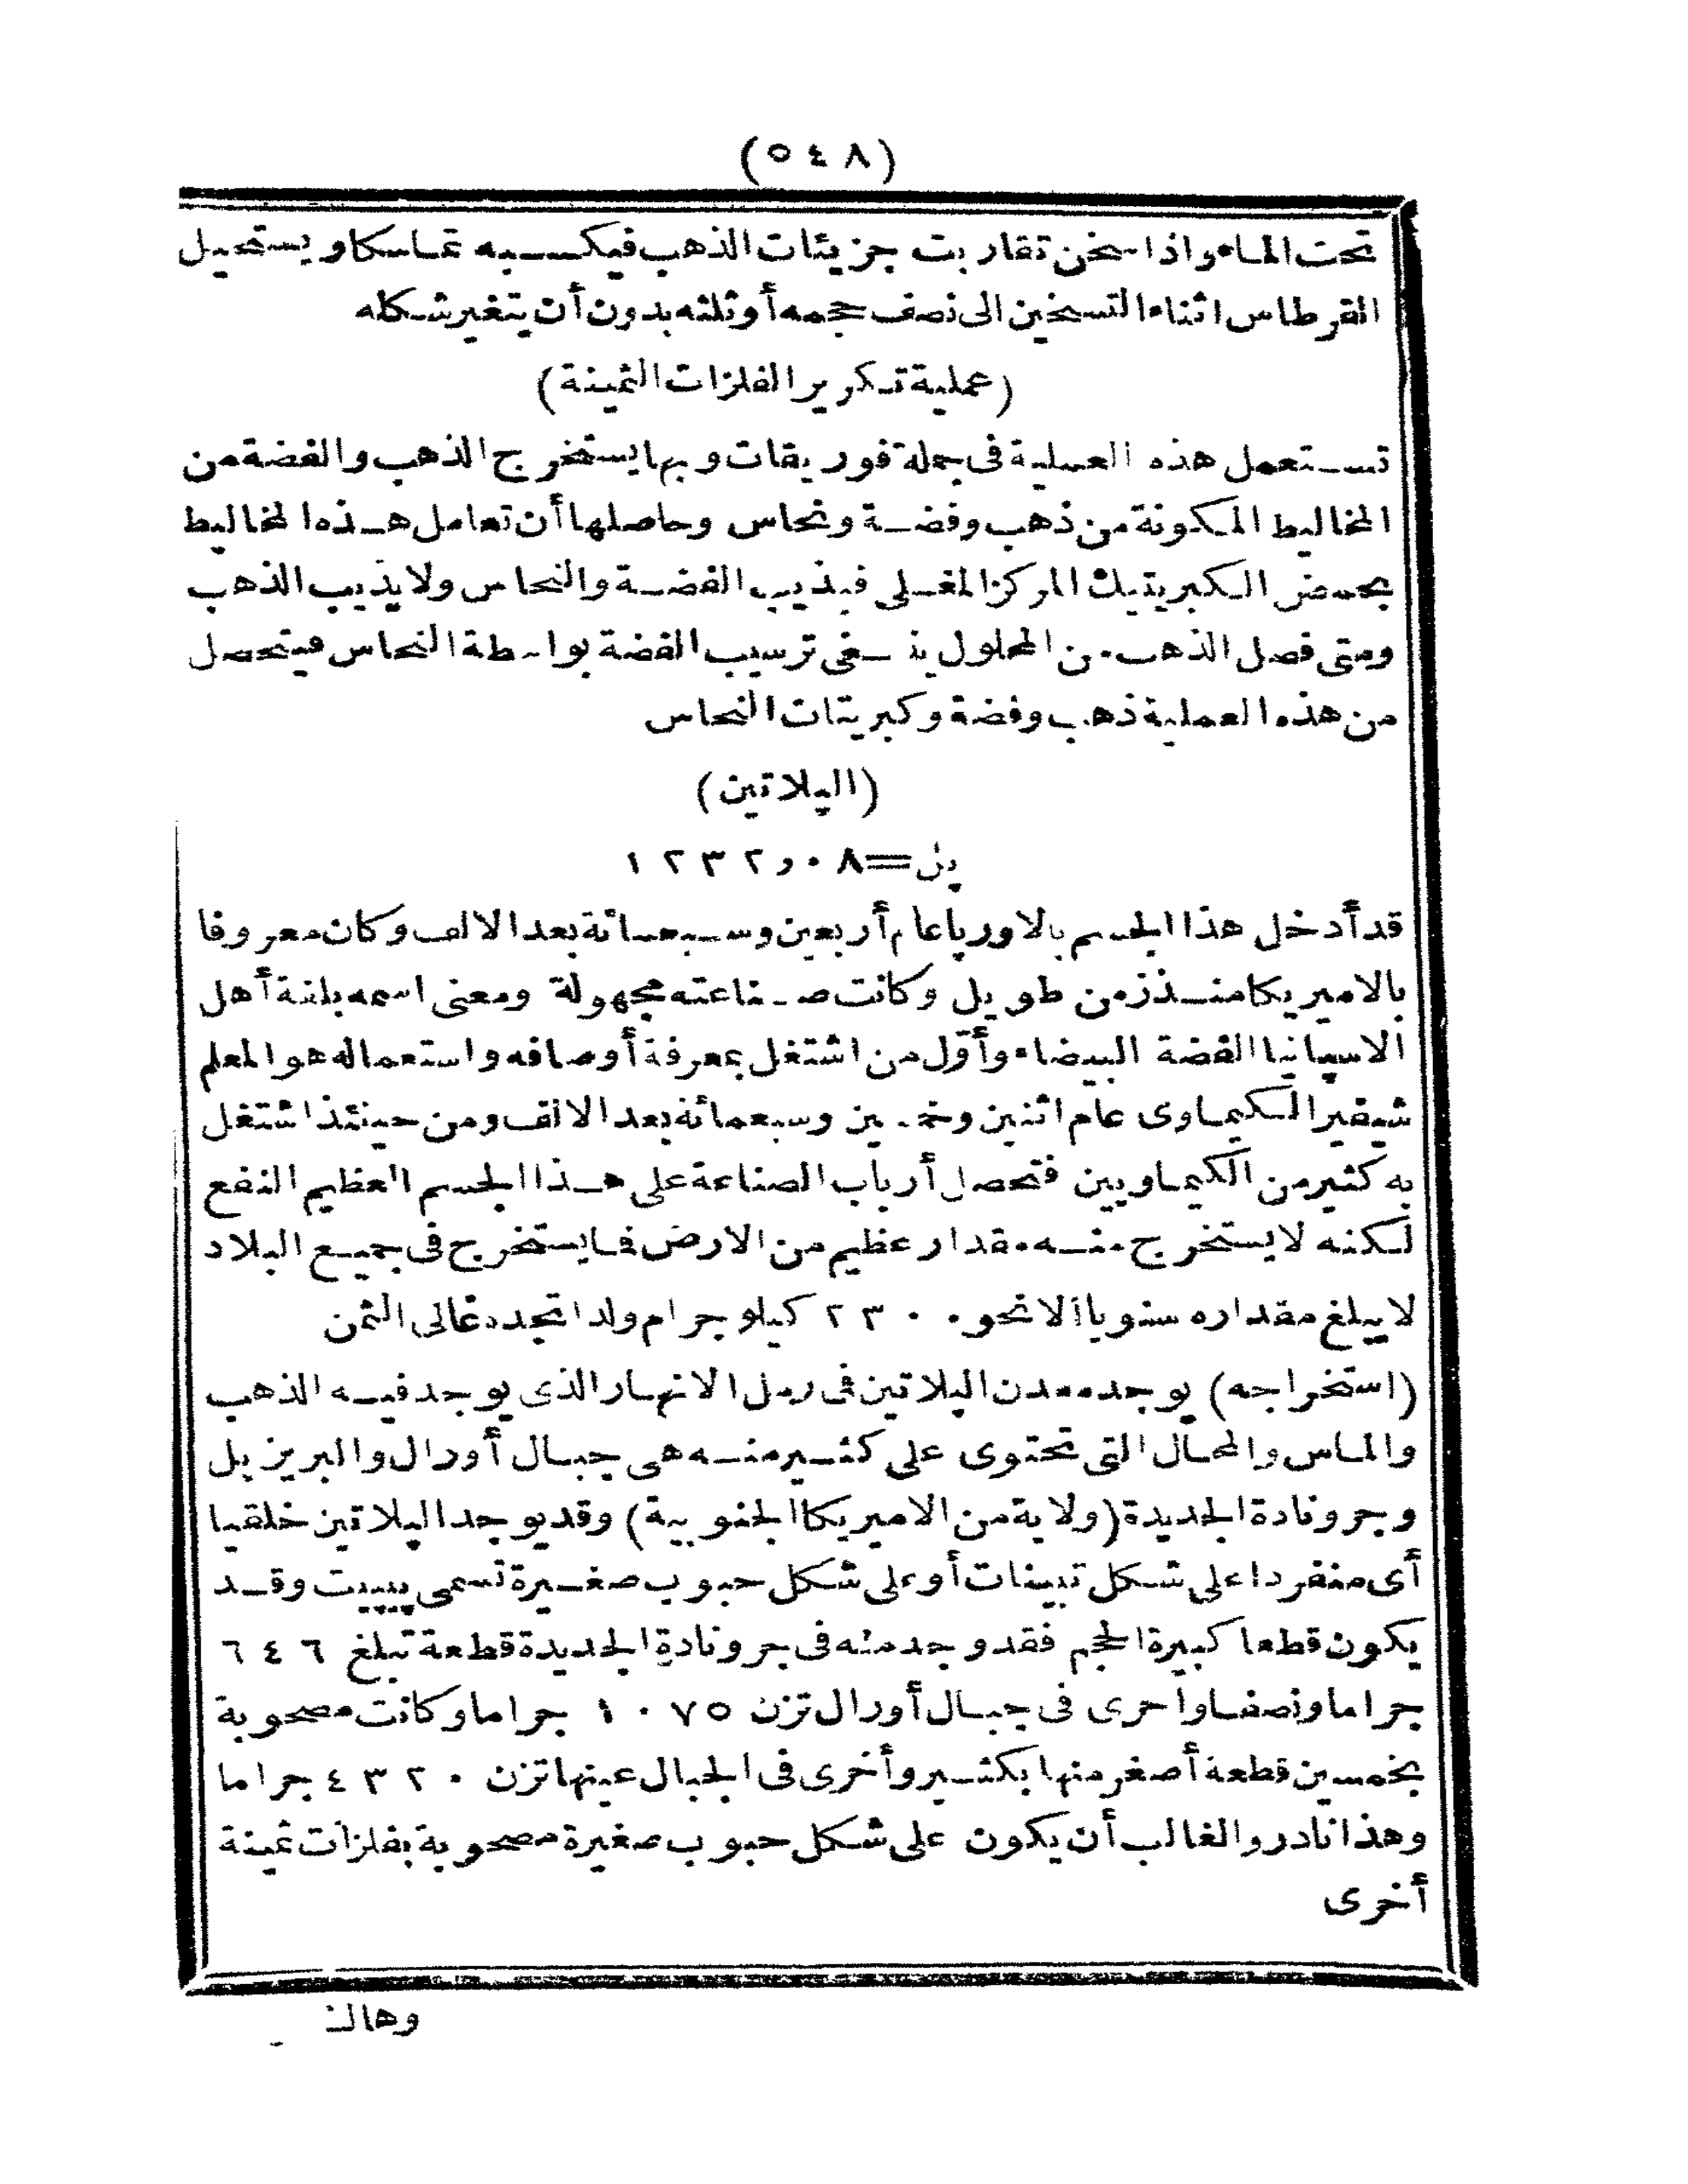 (٥٤٨)
تحت الماء واذا سخن تقاربت جزيئات الذهب فيكسبه تماسكا ويستحيل
القرطاس اثناء التسخين الى نصف حجمه أوثلثه بدون أن يتغير شكله
(عملية تكرير الفلزات الثمينة)
تستعمل هذه العملية فى جملة فوريقات وبها يستخرج الذهب والفضة من
المخاليط المكونة من ذهب وفضة ونحاس وحاصلها أن تعامل هذه المخاليط
بحمض الكبريتيك المركز المغلى فيذيب الفضة والنحاس ولا يذيب الذهب
ومتى فصل الذهب من المحلول ينبغى ترسيب الفضة بواسطة النحاس فيتحصل
من هذه العملية ذهب وفضة وكبريتات النحاس
(الپلاتين)
پل=١٢٣٢٫٠٨
قد أدخل هذا الجسم بالاورپا عام أربعين وسبعمائة بعد الالف وكان معروفا
بالامير يكا منذ زمن طويل وكانت صناعته مجهولة ومعنى اسمه بلغة أهل
الاسپانيا الفضة البيضاء وأوّل من اشتغل بمعرفة أوصافه واستعماله هو المعلم
شيفير الكيماوى عام اثنين وخمسين وسبعمائة بعد الالف ومن حينئذ اشتغل
به كثير من الكيماويين فتحصل أرباب الصناعة على هذا الجسم العظيم النفع
لكنه لا يستخرج منه مقدار عظيم من الارض فما يستخرج فى جميع البلاد
لا يبلغ مقداره سنويا الا نحو ٢٣٠٠ كيلو جرام ولذا تجده غالى الثمن
(استخراجه) يوجد معدن الپلاتين فى رمل الانهار الذى يوجد فيه الذهب
والماس والمحال التى تحتوى على كثير منه هى جبال أورال والبريزيل
وجرونادة الجديدة (ولاية من الاميريكا الجنوبية) وقد يوجد الپلاتين خلقيا
أى منفردا على شكل تبينات أو على شكل حبوب صغيرة تسمى پيپيت وقد
يكون قطعا كبيرة الحجم فقد وجد منه فى جرونادة الجديدة قطعة تبلغ ٦٤٦
جراما ونصفا واخرى فى جبال أورال تزن ١٠٧٥ جراما وكانت مصحوبة
بخمسين قطعة أصغر منها بكثير وأخرى فى الجبال عينها تزن ٤٣٢٠ جراما
وهذا نادر والغالب أن يكون على شكل حبوب صغيرة مصحوبة بفلزات ثمينة
أخرى